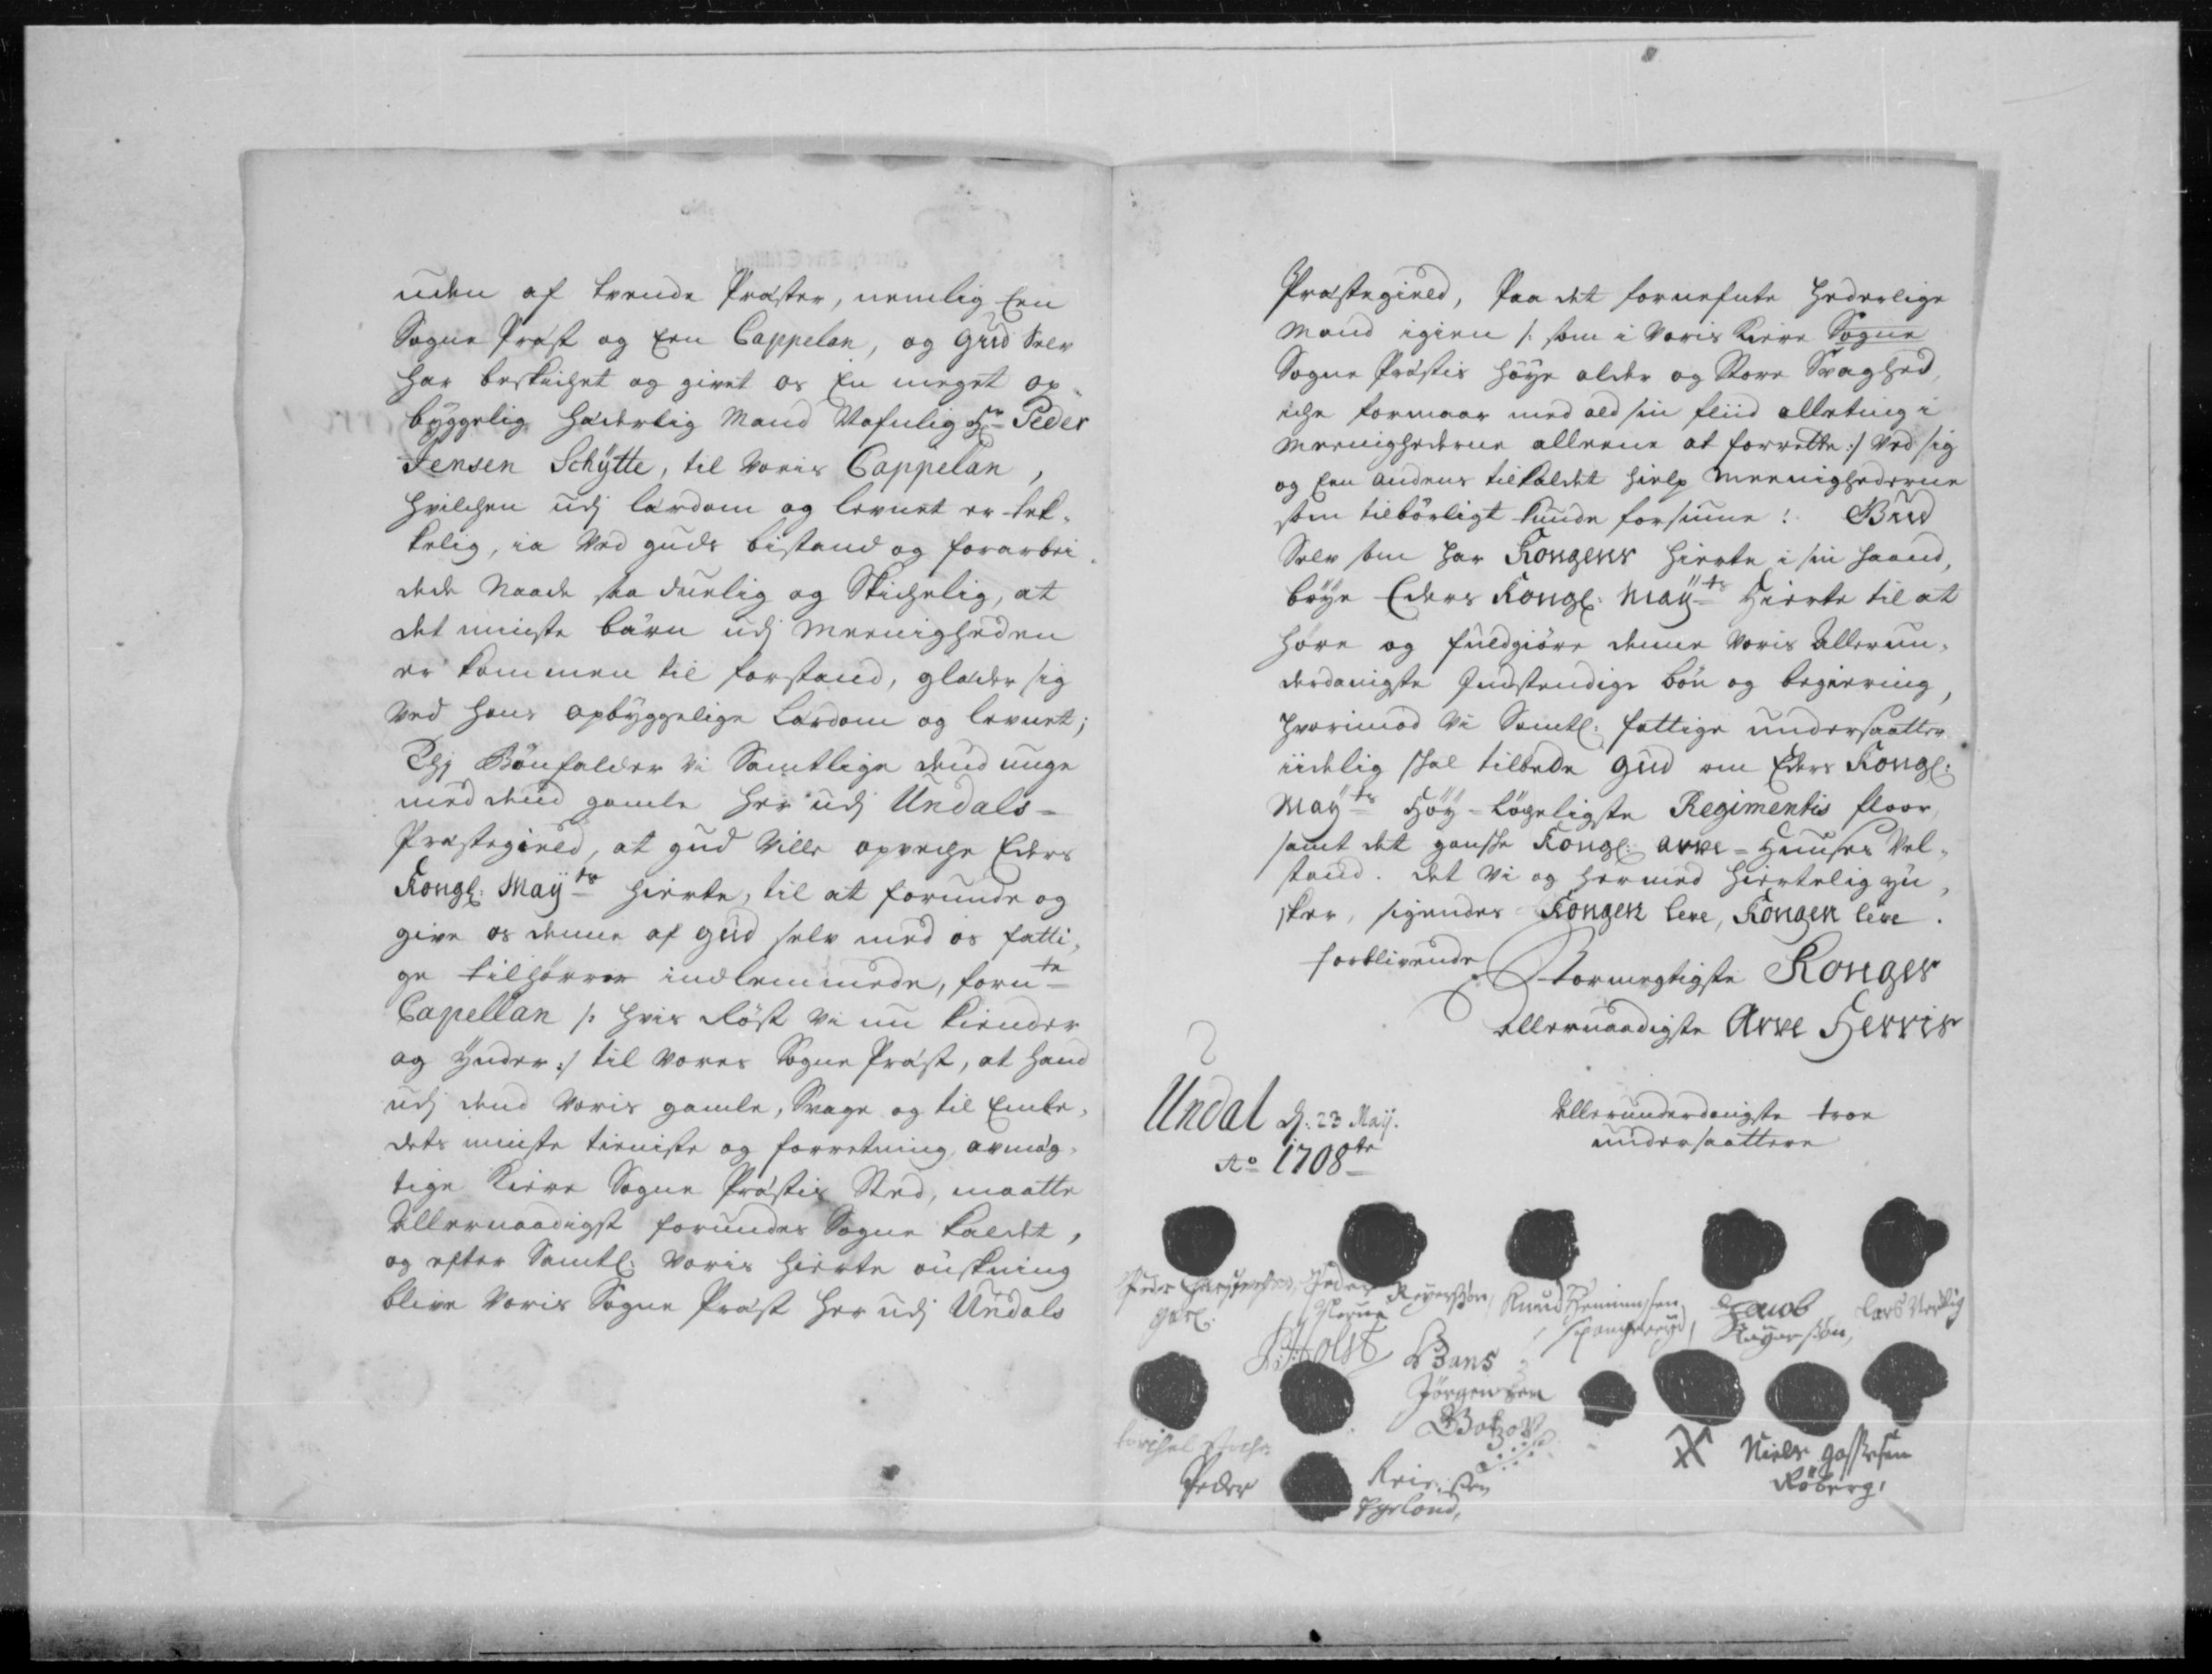 uden af tvende Præster, nemlig Een
Sogne Præst og Een Cappelan, og Gud Selv
har beskichet og givet os En meget op-
byggelig Hæderlig Mand Nafnlig Hr Peder
Jensen Schytte, til voris Cappelan,
hvilchen udj lærdom og levnet er tek-
kelig, ia ved guds bistand og forarbei-
dede Naade saa duelig og Skichelig, at
det minste barn udj Meenigheden
er kommen til forstand, glæder sig
ved hans opbyggelige Lærdom og levnet;
Thj Bönfalder vi Samtlige dend unge
med dend gamle her udj Undals-
Præstegield, at gud ville opveche Eders
Kongl: Mayts hierte, til at forunde og
give os denne af gud selv med os fatti-
ge tilhörrer indlemmede, fornte
Capellan /: hvis Röst vi nu kiender
og Ynder :/ til vores Sogne Præst, at hand
udj dend voris gamle, Svage og til Embe-
dets minste tieniste og forretning avmæg-
tige kiere Sogne Præstis Sted, maatte
Allernaadigst forundes Sogne kaldet,
og efter Samtl: voris hierte önskning
blive voris Sogne Præst her udj Undals
Præstegield, Paa det fornefnte Hederlige
Mand igien /: som i voris kiere Sogne
Sogne Præstis höye alder og Store Svaghed,
iche formaar med ald sin fliid alleting i
Meenighederne alleene at forrette :/ ved sig
og Een andens tilkaldet hielp Meenighederne
som tilbörligt kunde forsiune: Gud
Selv som har Kongens hierte i sin haand,
böye Eders Kongl: Mayts Hierte til at
höre og fuldgiöre denne voris Allerun-
derdanigste Indstendige bön og begiering,
hvorimod vi Samtl: fattige undersaatter
iidelig skal tilbede gud om Eders Kongl:
Mayts Höy-Löveligste Regimentis floor,
samt det ganske Kongl: arve-Huuses Vel-
stand. det vi og hermed hiertelig yn-
sker, sigendes Kongen leve, Kongen leve.
forblivende
Stormegtigste Konges
Allernaadigste Arve Herris
Undal d: 23 Maij.
Ao 1708te
Allerunderdanigste troe
undersaattere
Peder Peder Reyersön, Knud Jacob Lars
Reyersön,
Holst Hans
Jörgensen
Niels
Röberg,
Peder